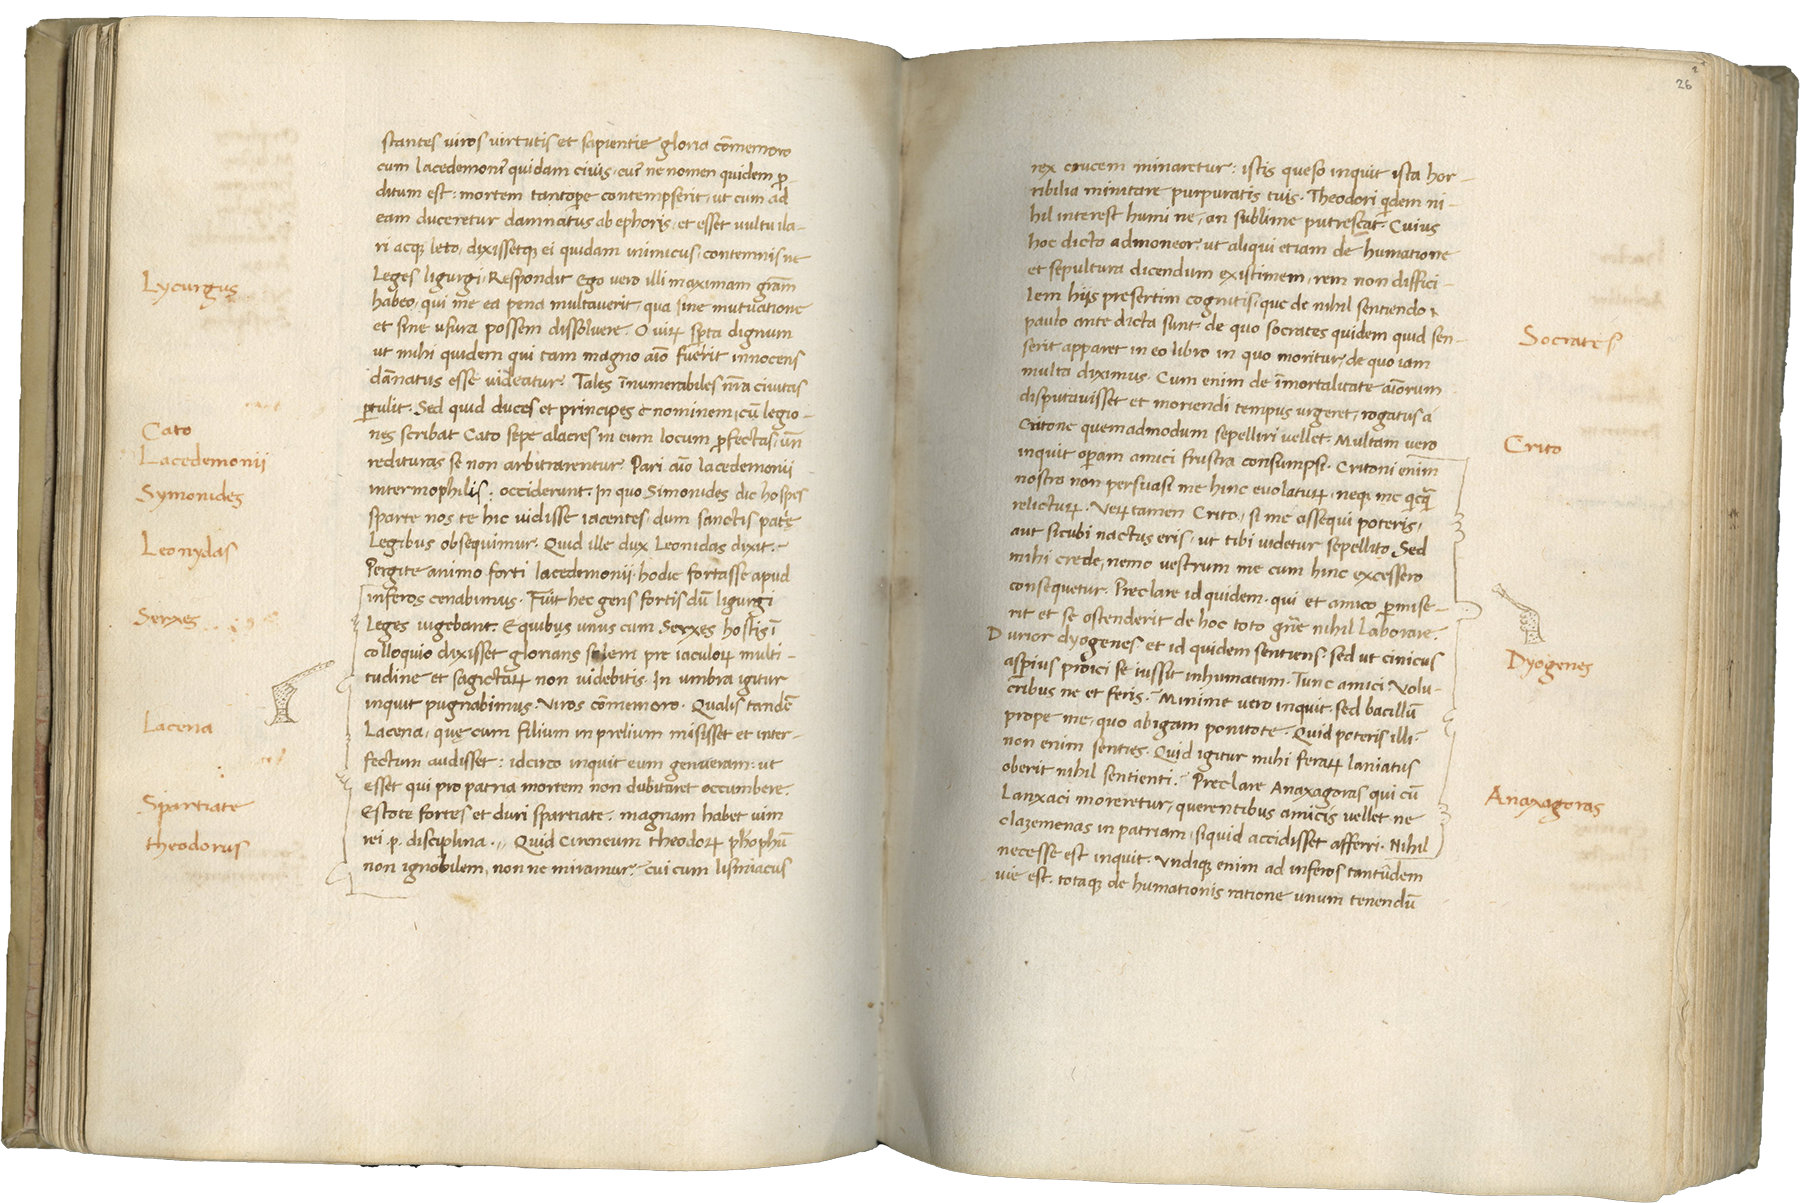 stantes viros virtutis et sapientie gloria cõmemoro
cum lacedemoni9 quidam civis, cui9 ne nomen quidem p̱
ditum est: mortem tantop̱e contempserit, ut cum ad
eam duceretur damnatus ab ephoris, et esset vultu ila-
ri acq, leto, dixissetq, ei quidam inimicus, contemnis ne
Leges ligurgi, Respondit Ego vero illi maximam grãm
habeo, qui me ea pena multaverit, qua sine mutuatione
et sine usura possem dissolvere. O viꝝ sp̱ta dignum
ut mihi quidem qui tam magno aĩo fuerit innocens
dãnatus esse videatur. Tales ĩnumerabiles nr̃a civitas
p̱tulit. Sed quid duces et principes nominem, cũ legio-
nes scribat Cato sepe alacres in eum locum p̱fectas, uñ
redituras se non arbitrarentur. Pari aĩo lacedemonii
intermophilis: occiderunt. In quo Simonides dic hospes
sparte nos te hic vidisse iacentes, dum sanctis patr̃ę
Legibus obsequimur. Quid ille dux Leonidas dixit.
Pergite animo forti lacedemonii hodie fortasse apud
inferos cenabimus. Fuit hec gens fortis dũ ligurgi
Leges vigebant. E quibus unus cum Serxes hostis ĩ
colloquio dixisset glorians solem pre iaculoꝝ multi-
tudine et sagictaꝝ non videbitis. In umbra igitur
inquit pugnabimus. Viros cõmemoro. Qualis tandẽ
Lacena, quę cum filium in prelium misisset et inter-
fectum audisset: idcirco inquit eum genueram: ut
esset qui pro patria mortem non dubitaret occumbere.
Estote fortes et duri spartiate. magnam habet vim
rei .p. disciplina. Quid Cireneum theodoꝝ pħophũ
non ignobilem, non ne miramur? cui cum lisiniacus
Lycurgus
Cato
Lacedemonii
Symonides
Leonydas
Serxes
Lacena
Spartiate
theodorus
26
rex crucem minaretur: istis queso inquit ista hor-
ribilia minitare purpuratis tuis. Theodori q̇dem ni-
hil interest humi ne, an sublime putrescat. Cuius
hoc dicto admoneor, ut aliqui etiam de humatione
et sepultura dicendum existimem, rem non diffici-
lem hiis presertim cognitis, que de nihil sentiendo
paulo ante dicta sunt. de quo socrates quidem quid sen-
serit apparet in eo libro in quo moritur, de quo iam
multa diximus. Cum enim de ĩmortalitate aĩorum
disputavisset et moriendi tempus urgeret, rogatus a
Critone quemadmodum sepelliri vellet. Multam vero
inquit op̱am amici frustra consumpsi. Critoni enim
nostro non persuasi me hinc evolatuꝝ, neq, me q̇cq̃
relictuꝝ. Veꝝtamen Crito, si me assequi poteris,
aut sicubi nactus eris, ut tibi videtur sepellito. Sed
mihi crede, nemo vestrum me cum hinc excessero
consequetur. Preclare id quidem. qui et amico p̱mise-
rit et se ostenderit de hoc toto gñe nihil laborare.
Durior dyogenes et id quidem sentiens. sed ut cinicus
asp̱ius proici se iussit inhumatum. Tunc amici volu-
cribus ne et feris. Minime vero inquit. sed bacillũ
prope me, quo abigam ponitote. Quid poteris illi.
non enim senties. Quid igitur mihi feraꝝ laniatus
oberit nihil sentienti. Preclare Anaxagoras qui cũ
Lanxaci moreretur, querentibus amicis vellet ne
clazemenas in patriam, siquid accidisset afferri. Nihil
necesse est inquit. Undiq, enim ad inferos tantũdem
vie est. totaq, de humationis ratione unum tenendũ
Socrates
Crito
Dyogenes
Anaxagoras